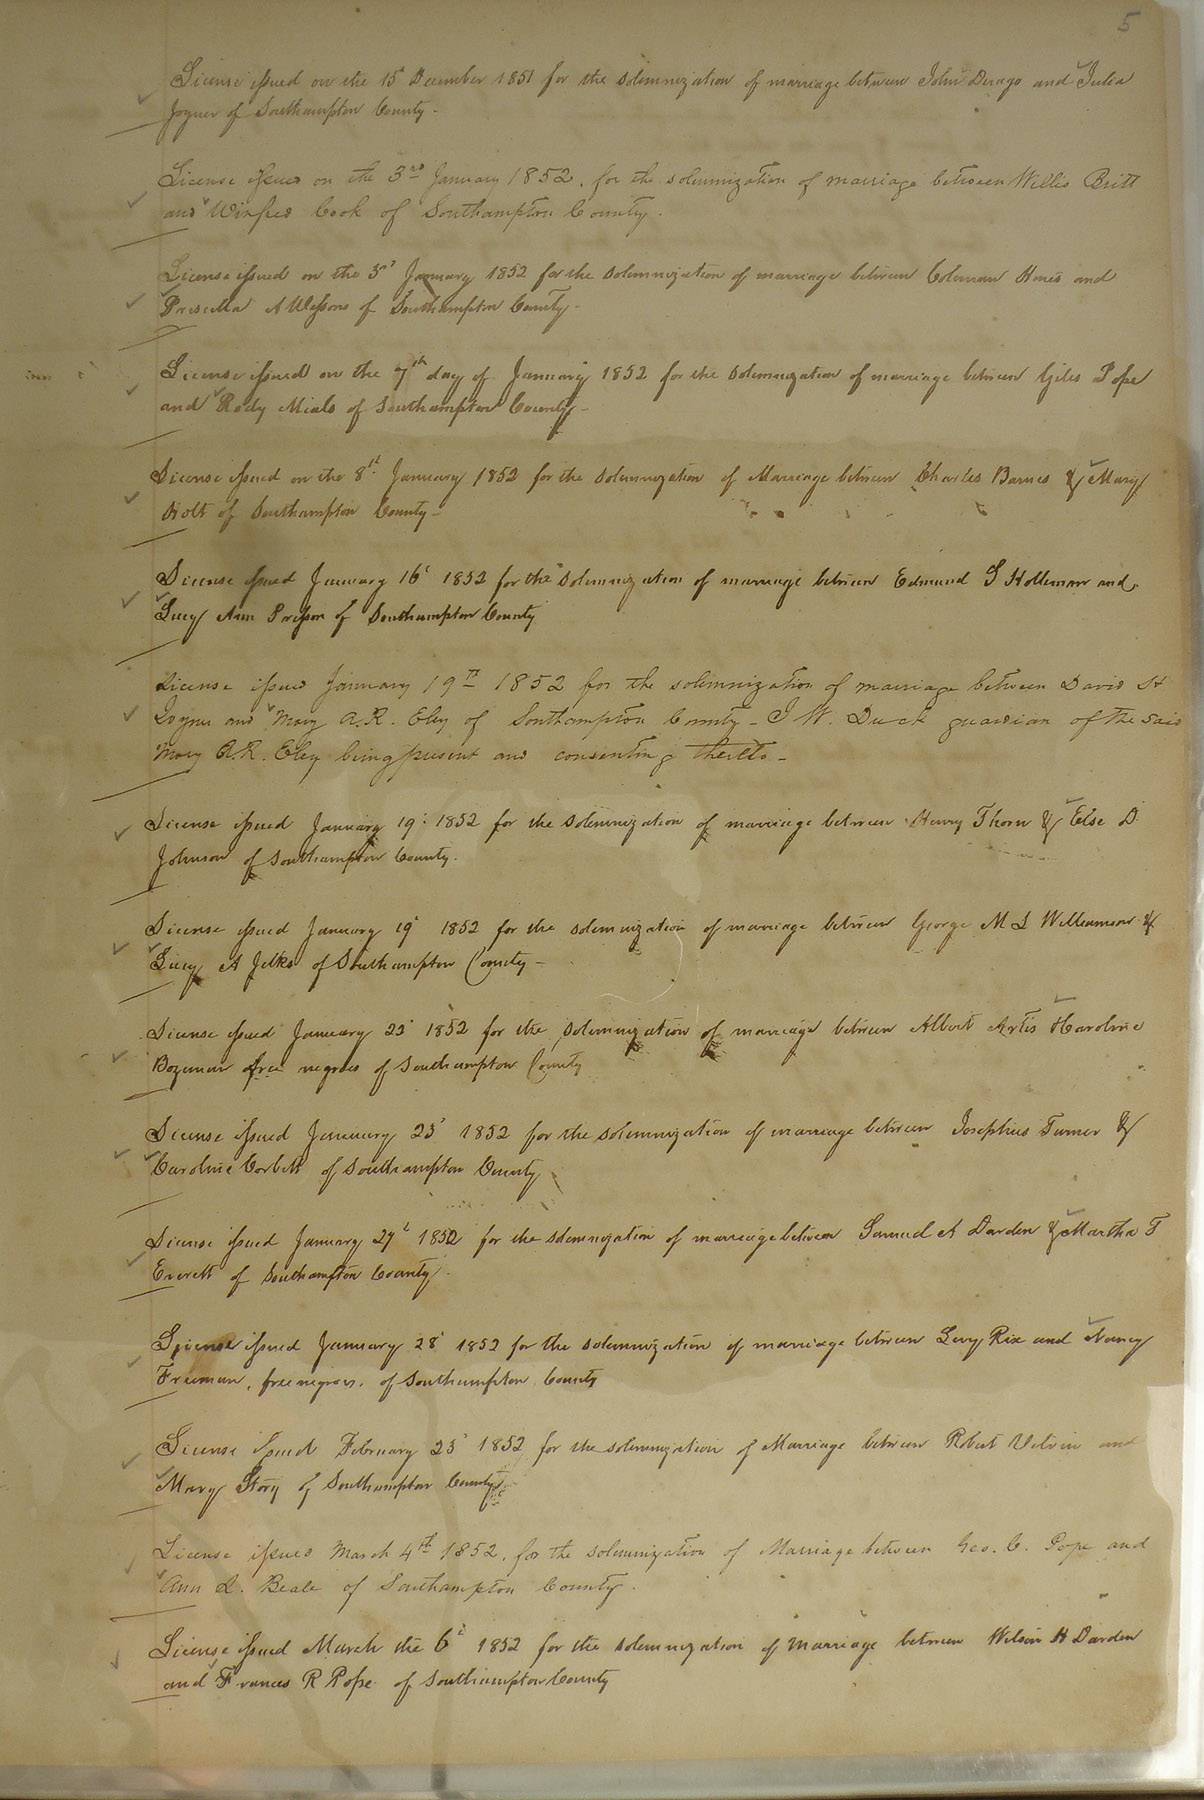 5
License issued on the 15th December 1851 for the solemnization of marriage between John Durgo and Julia
Joyner of Southampton County -
License issued on the 3rd January 1852, for the solemnization of marriage between Willis Britt
and Winfred Cook of Southampton County.
License issued on the January 1852 for the solemnization of marriage between Coleman and
Priscilla A Wessons of Southampton County -
License issued on the 7th day of January 1852 for the solemnization of marriage between Giles Pope
and Rody Mials of Southampton County -
License issued on the 8th January 1852 for the solemnization of Marriage between Charles Barnes & Mary
Holt of Southampton County -
License issued January 16 1852 for the solemnization of marriage between Edmund S Holleman and
Lucy Ann Presson of Southampton County
License issued January 19th 1852 for the solemnization of marriage between David H
Joyner and Mary A.R. Eley of Southampton County - J W. Duck guardian of the said
Mary A.R. Eley being present and consenting thereto -
License issued January 19 1852 for the solemnization of marriage between Henry Thorn & Else D
Johnson of Southampton County.
License issued January 19 1852 for the solemnization of marriage between George M L Williamson &
Lucy A Jelks of Southampton County -
License issued January 23 1852 for the solemnization of marriage between Albert Artis & Caroline
Bozeman free negroes of Southampton County
License issued January 23 1852 for the solemnization of marriage between Josephus Turner &
Caroline Corbett of Southampton County
License issued January 27 1852 for the solemnization of marriage between Samuel A Darden & Martha T
Everett of Southampton County.
License issued January 28 1852 for the solemnization of marriage between Levy Rix and Nancy
Freeman, free negroes, of Southampton County
License issued February 23 1852 for the solemnization of Marriage between Robert and
Mary Story of Southampton County
License issued March 4th 1852, for the solemnization of Marriage between Geo. C. Pope and
Ann L. Beale of Southampton County.
License issued March the 6th 1852 for the solemnization of Marriage between Wilson H Darden
and Frances R Pope of Southampton County